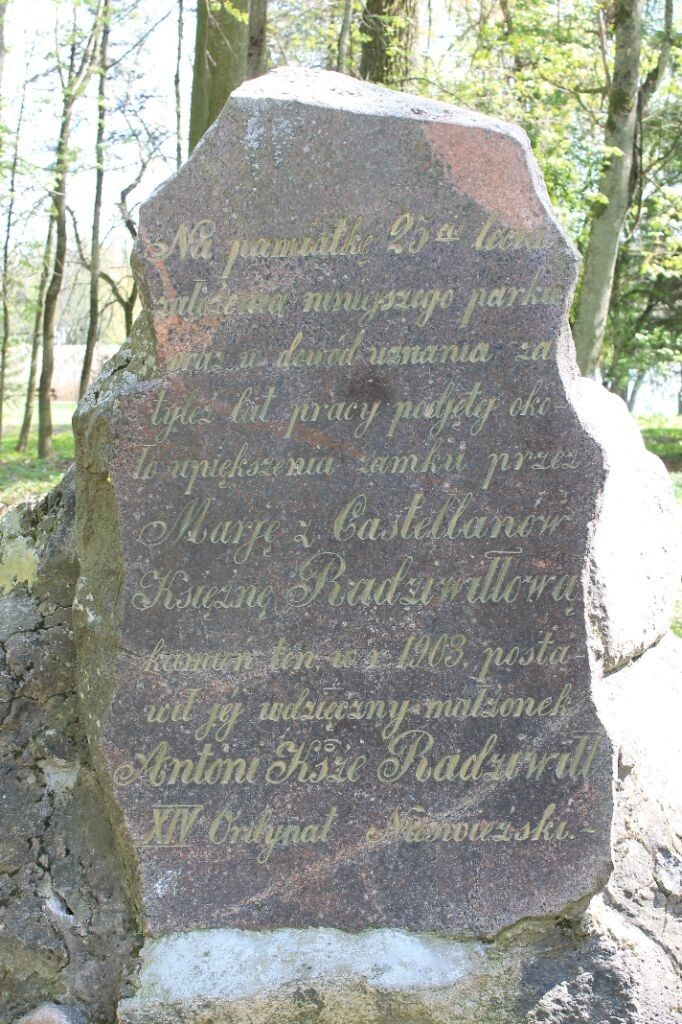 Na pamiątkę 25ᶜⁱᵒ lecia
założenia niniejszego parku
oraz w dowód uznania za
tyleż lat pracy podjętej oko-
ło upiększenia zamku przez
Marję z Castellanów
Księżnę Radziwiłłową
kamień ten w r. 1903. posta
wił jej wdzięczny małżonek
Antoni Ksże Radziwiłł
XIV Ordynat Nieświeżski.-